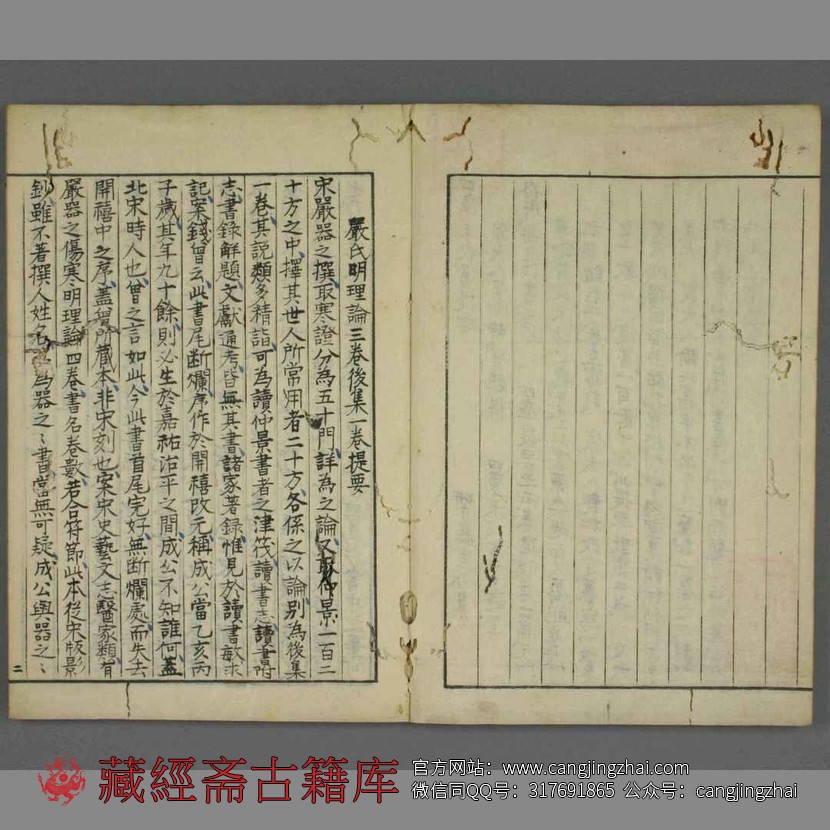 嚴氏明理論三卷後集一卷提要
宋嚴器之撰取寒證分為五十門詳為之論又取仲景一百二
十方之中擇其世人所常用者二十方各係之以論別為後集
一卷其說類多精詣可為讀仲景書者之津筏讀書志讀書附
志書錄解題文獻通考皆無其書諸家著錄惟見於讀書敏求
記案錢曾云此書尾斷爛序作於開禧改元稱成公當乙亥丙
子歲其年九十餘則必生於嘉祐治平之間成公不知誰何蓋
北宋時人也曾之言如此今此書首尾完好無斷爛處而失去
開禧中之序蓋曾所藏本非宋刻也案宋史藝文志醫家類有
嚴器之傷寒明理論四卷書名卷數若合符節此本從宋版影
鈔雖不著撰人姓名為器之〻書當無可疑成公與器之〻
二
藏經斋古籍库
官方网站：www.cangjingzhai.com
微信同QQ号：317691865 公众号：cangjingzhai